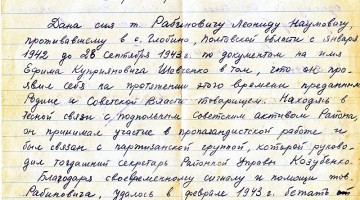 Дана сия т. Рабиновичу Леониду Наумовичу
проживавшему в с. Глобино, Полтавской области с января
1942 до 28 сентября 1943 г. по документам на имя
Ефима Куприяновича Шевченко в том, что он про-
явил себя на протяжении этого времени преданным
Родине и Советской Власти товарищем. Находясь в
тесной связи с подпольным Советским активом района,
он принимал участие в пропагандистской работе и
был связан с партизанской группой, которой руково-
дил тогдашний секретарь Районной Управы Козубенко.
Благодаря своевременному сигналу и помощи тов.
Рабиновича, удалось в феврале 1943 г. бежать от